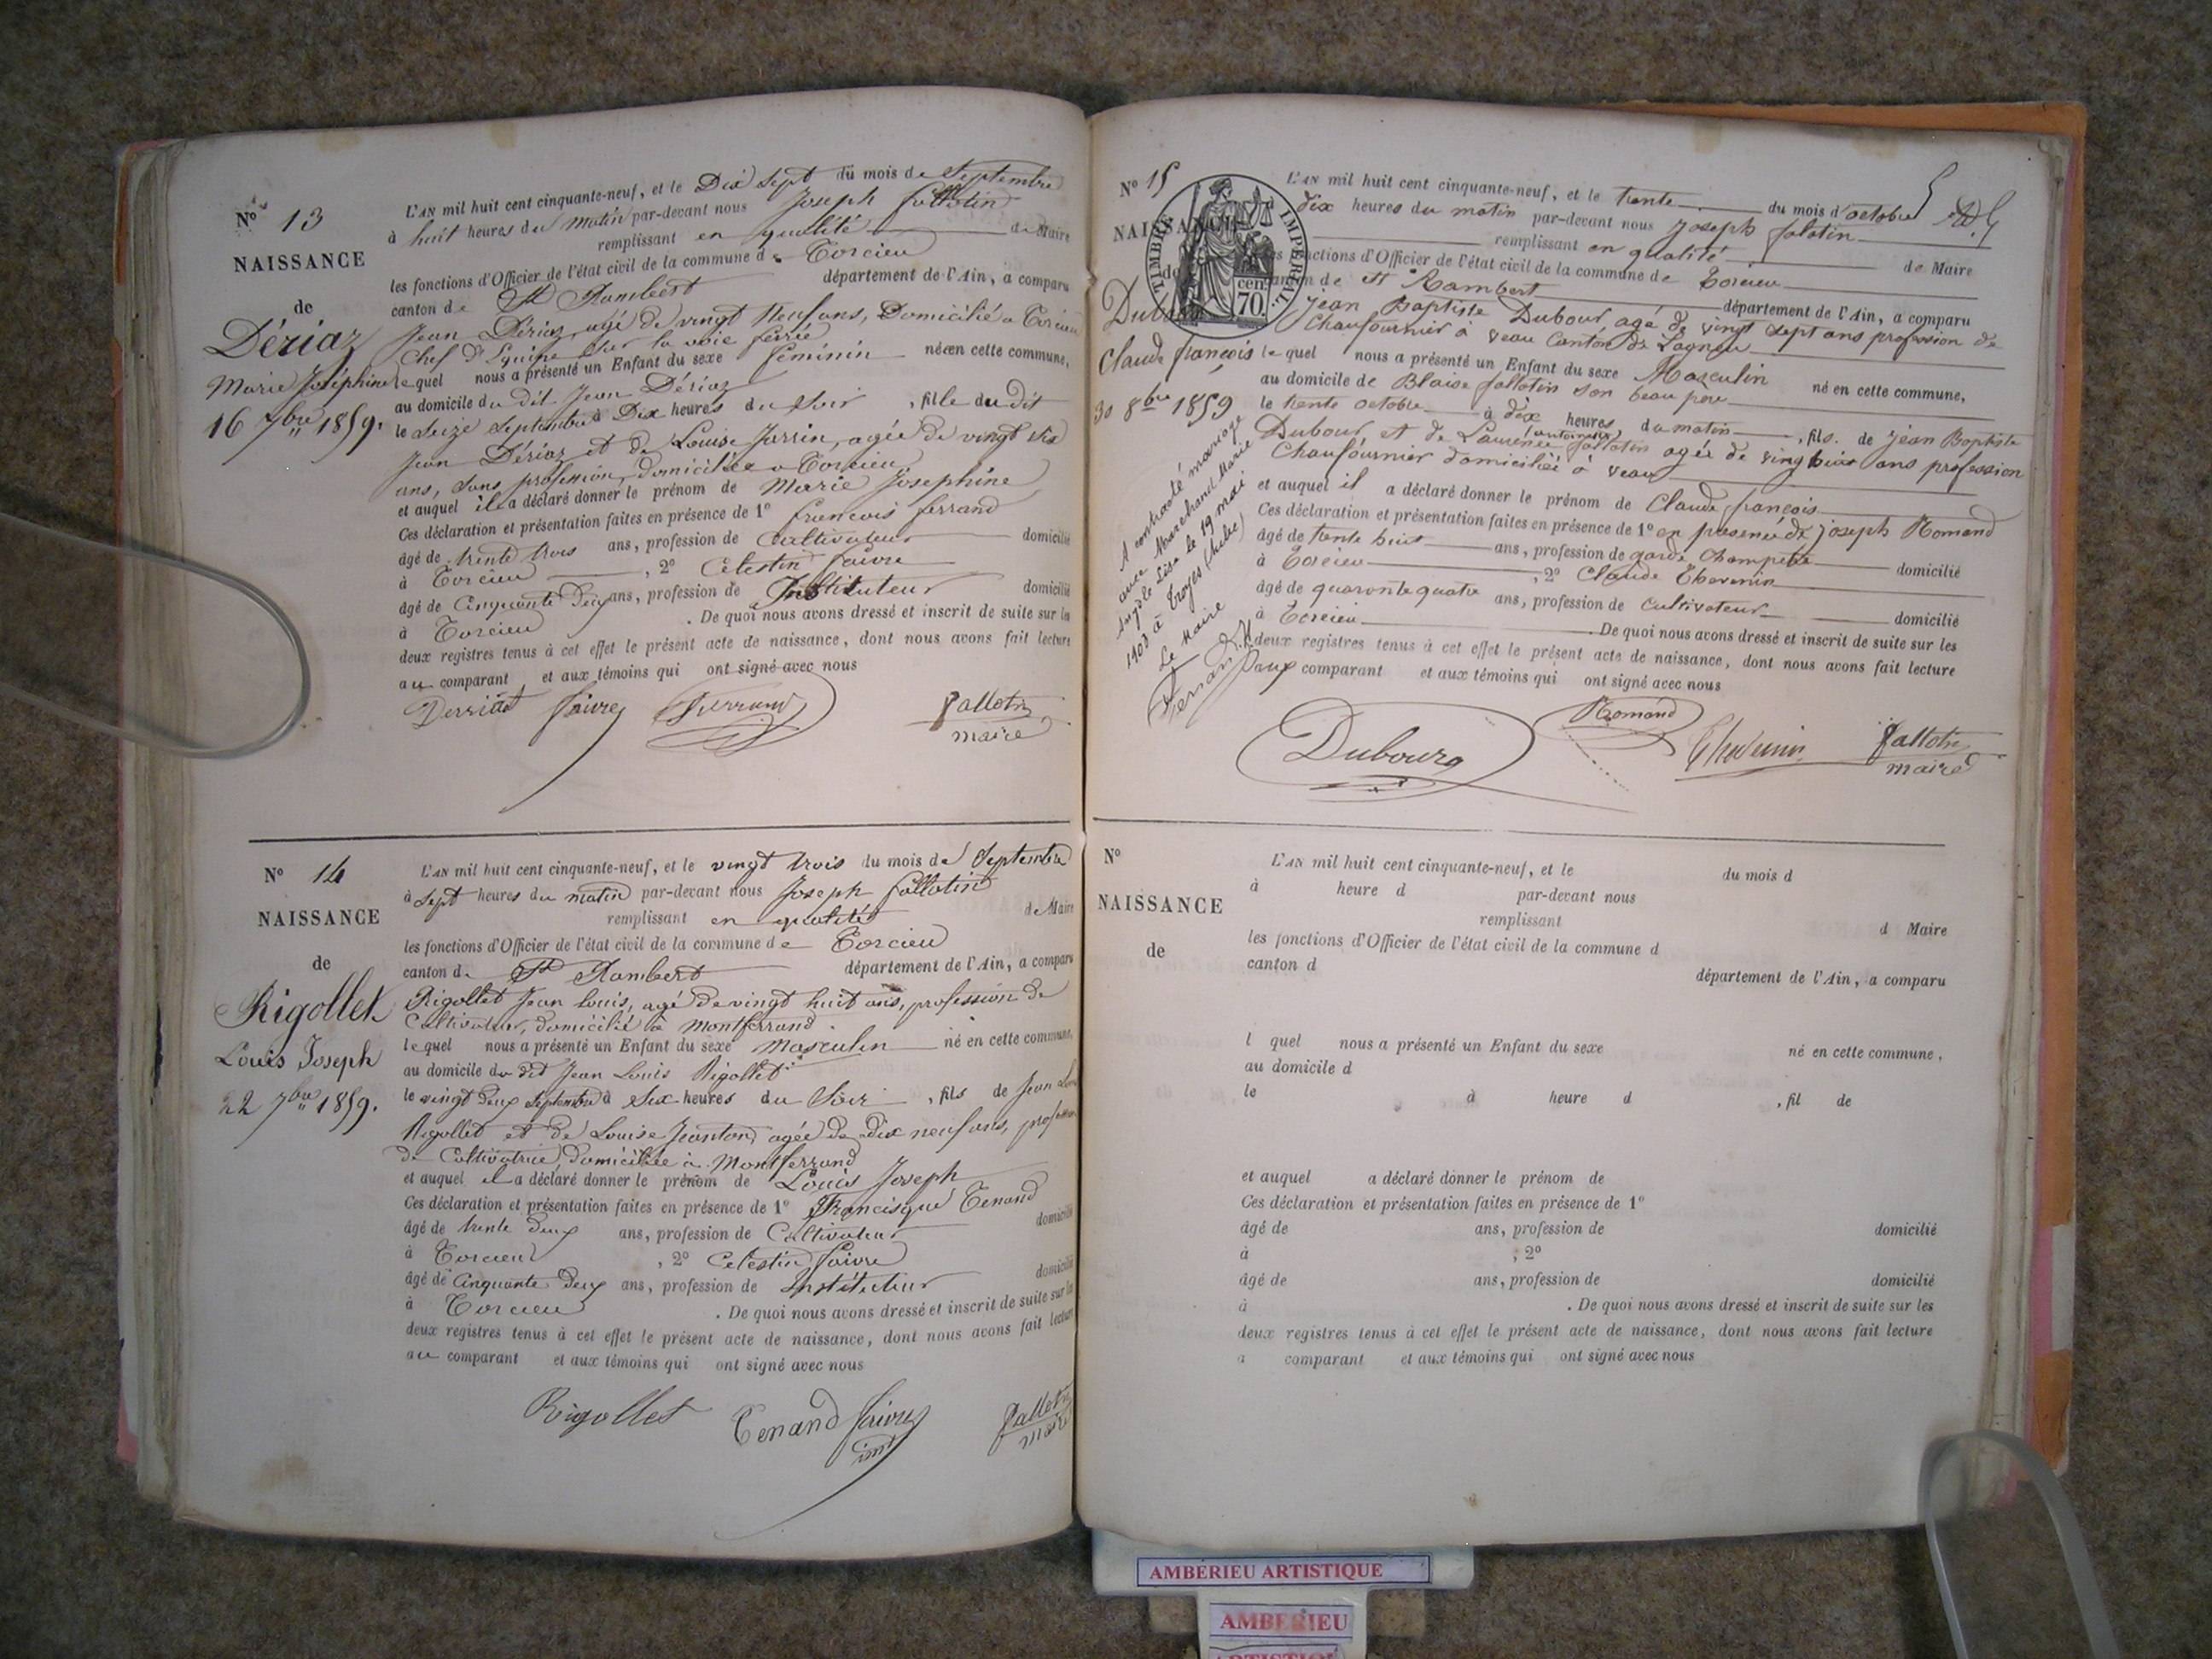 N° 13
NAISSANCE
de
Dériaz
Marie Joséphine
16 7bre 1859.
L'AN mil huit cent cinquante-neuf, et le Dix Sept du mois de Septembre
à huit heures du Matin par-devant nous Joseph fallotin
remplissant en qualité de Maire
les fonctions d'Officier de l'état civil de la commune de Torcieu
canton de St Rambert département de l'Ain, a comparu
Jean Dériaz, agé de vingt Neuf ans, Domicilié a Torcieu
Chef d'Equipe sur la voie ferrée
lequel nous a présenté un Enfant du sexe féminin née en cette commune,
au domicile du dit Jean Dériaz
le Seize Septembre à Dix heures du Soir , fille du dit
Jean Dériaz et de Louise Jarrin, agée de vingt six
ans, sans profession, domiciliée a Torcieu
et auquel il a déclaré donner le prénom de Marie Josephine
Ces déclaration et présentation faites en présence de 1° francois ferrand
âgé de trente trois ans, profession de Cultivateur domicilié
à Torcieu , 2° Celestin faivre
âgé de Cinquante Deux ans, profession de Instituteur domicilié
à Torcieu . De quoi nous avons dressé et inscrit de suite sur les
deux registres tenus à cet effet le présent acte de naissance, dont nous avons fait lecture
au comparant et aux témoins qui ont signé avec nous
faivre Ferrand fallotin
maire
N° 14
NAISSANCE
de
Rigollet
Louis Joseph
22 7bre 1859.
L'AN mil huit cent cinquante-neuf, et le vingt trois du mois de Septembre
à Sept heures du matin par-devant nous Joseph fallotin
remplissant en qualité de Maire
les fonctions d'Officier de l'état civil de la commune de Torcieu
canton de St Rambert département de l'Ain, a comparu
Rigollet Jean Louis, agé de vingt huit ans, profession de
Cultivateur, domicilié à Montferrand
lequel nous a présenté un Enfant du sexe Masculin né en cette commune,
au domicile du dit Jean Louis Rigollet
le vingt deux Septembre à Six heures du Soir , fils de Jean Louis
Rigollet et de Louise Jeanton, agée de dix neuf ans, profession
de Cultivatrice, domiciliée à Montferrand
et auquel il a déclaré donner le prénom de Louis Joseph
Ces déclaration et présentation faites en présence de 1° Francisque Tenand
âgé de trente deux ans, profession de Cultivateur domicilié
à Torcieu , 2° Celestin faivre
âgé de Cinquante Deux ans, profession de Instituteur domicilié
à Torcieu . De quoi nous avons dressé et inscrit de suite sur les
deux registres tenus à cet effet le présent acte de naissance, dont nous avons fait lecture
au comparant et aux témoins qui ont signé avec nous
Rigollet Tenand faivre fallotin
inst maire
N° 15
NAISSANCE
de
Claude françois
30 8bre 1859
TIMBRE IMPÉRIAL
70 cen.
A contracté mariage
avec Marchand Marie
Lise le 19 mai
1903 à Troyes (Aube)
Le Maire
L'AN mil huit cent cinquante-neuf, et le trente du mois d'octobre
dix heures du matin par-devant nous Joseph falotin
remplissant en qualité de Maire
les fonctions d'Officier de l'état civil de la commune de Torcieu
canton de st Rambert département de l'Ain, a comparu
jean Baptiste Dubour agé de vingt sept ans profession de
Chaufournier à veau Canton de Lagnieu
lequel nous a présenté un Enfant du sexe Masculin né en cette commune,
au domicile de Blaise fallotin son beau pere
le trente octobre à dix heures du matin , fils de jean Baptiste
Dubour et de Laurence fallotin agée de ans profession
Chaufournier domiciliée à veau
et auquel il a déclaré donner le prénom de Claude françois
Ces déclaration et présentation faites en présence de 1° en présence de joseph Romand
âgé de trente huit ans, profession de garde Champetre domicilié
à Torcieu , 2° Claude Thevenin
âgé de quarante quatre ans, profession de Cultivateur domicilié
à Torcieu . De quoi nous avons dressé et inscrit de suite sur les
deux registres tenus à cet effet le présent acte de naissance, dont nous avons fait lecture
aux comparant et aux témoins qui ont signé avec nous
Dubourg Romand Thevenin fallotin
maire
N°
NAISSANCE
de
L'AN mil huit cent cinquante-neuf, et le du mois d
à heure d par-devant nous
remplissant d Maire
les fonctions d'Officier de l'état civil de la commune d
canton d département de l'Ain, a comparu
l quel nous a présenté un Enfant du sexe né en cette commune,
au domicile d
le à heure d , fil de
et auquel a déclaré donner le prénom de
Ces déclaration et présentation faites en présence de 1°
âgé de ans, profession de domicilié
à , 2°
âgé de ans, profession de domicilié
à . De quoi nous avons dressé et inscrit de suite sur les
deux registres tenus à cet effet le présent acte de naissance, dont nous avons fait lecture
a comparant et aux témoins qui ont signé avec nous
AMBÉRIEU ARTISTIQUE
AMBERIEU
ARTISTIQUE